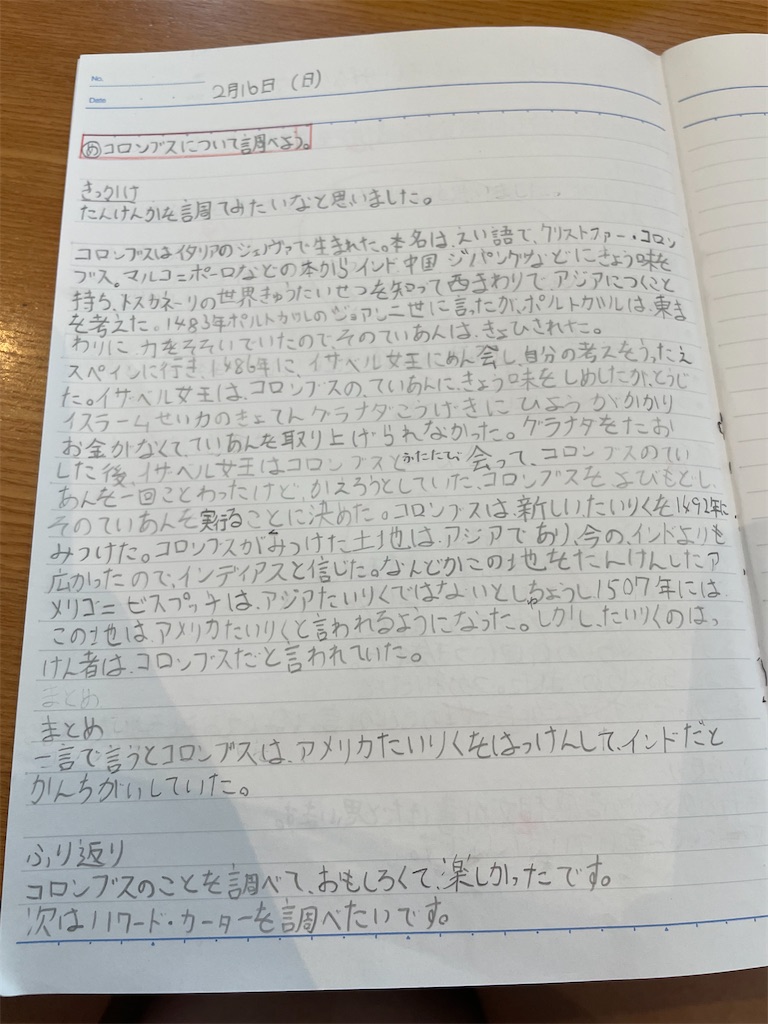 No.
Date 2月16日(日)
め コロンブスについて調べよう。
きっかけ
たんけんかを調てみたいなと思いました。
コロンブスはイタリアのジェノヴァで生まれた。本名は、えい語で、クリストファー・コロン
ブス。マルコ=ポーロなどの本からインド、中国、ジパングなどにきょう味を
持ち、トスカネーリの世界きゅうたいせつを知って西まわりで、アジアにつくこと
を考えた。1483年ポルトガルのジョアン二世に言ったが、ポルトガルは、東ま
わりに力をそそいでいたので、そのていあんは、きょひされた。
スペインに行き、1486年に、イサベル女王にめん会し、自分の考えをうったえ
た。イサベル女王は、コロンブスの、ていあんに、きょう味をしめしたが、とうじ
イスラームせい力のきょてんグラナダこうげきにひようがかかり
お金がなくて、ていあんを取り上げられなかった。グラナダをたお
した後、イサベル女王はコロンブスとふたたび会って、コロンブスのてい
あんを一回ことわったけど、かえろうとしていた、コロンブスを、よびもどし、
そのていあんを実行することに決めた。コロンブスは、新しい、たいりくを1492年に
みつけた。コロンブスがみつけた土地は、アジアであり、今の、インドよりも
広かったので、インディアスと信じた。なんどかこの地をたんけんしたア
メリゴ=ビスプッチは、アジアたいりくではないとしゅちょうし、1507年には、
この地は、アメリカたいりくと言われるようになった。しかし、たいりくのはっ
けん者は、コロンブスだと言われていた。
まとめ
まとめ
一言で言うとコロンブスは、アメリカたいりくをはっけんして、インドだと
かんちがいしていた。
ふり返り
コロンブスのことを調べて、おもしろくて、楽しかったです。
次はハワード・カーターを調べたいです。